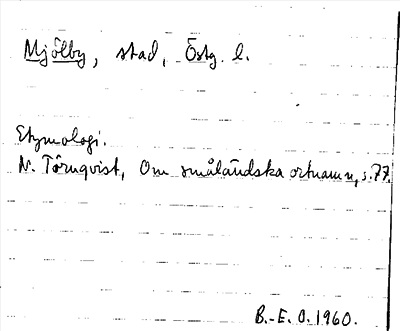 Mjölby, stad, Östg. l.
Etymologi.
N. Törnqvist, Om småländska ortnamn, s. 77.
B.-E. O. 1960.